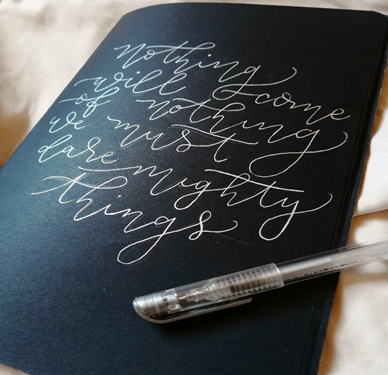 nothing
will come
of nothing
we must
dare mighty
things